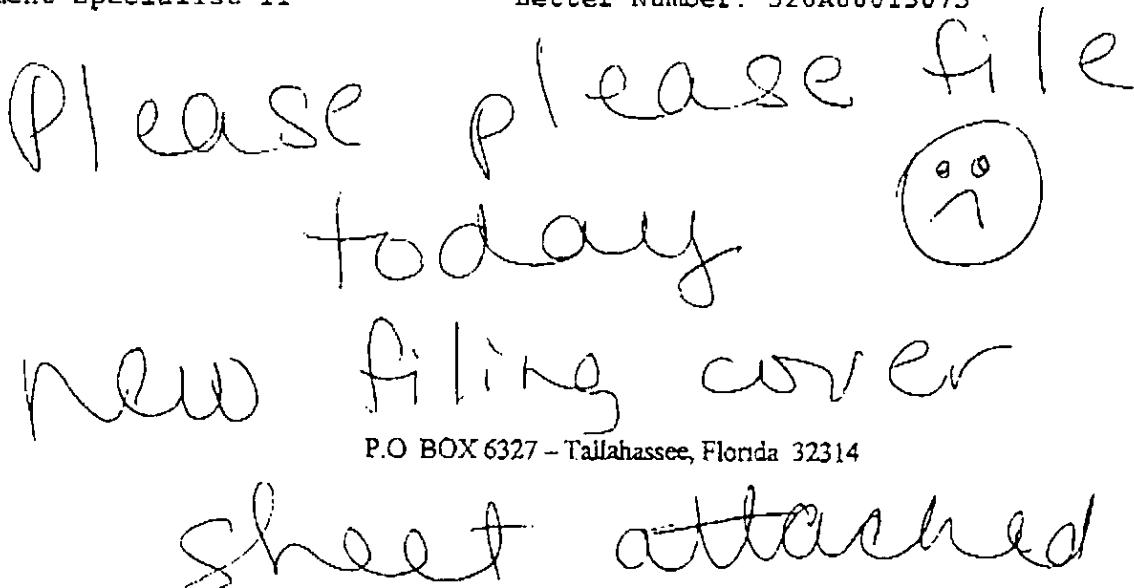 Specialist II Letter Number:
Please please file
today
new filing cover
P.O BOX 6327 – Tallahassee, Florida 32314
sheet attached